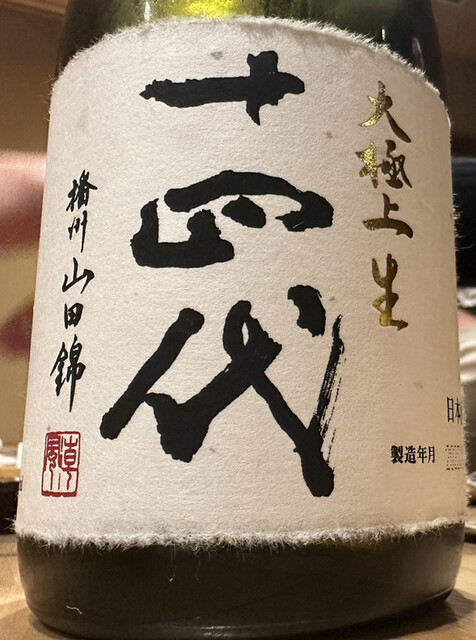 大極上生
十四代
播州山田錦
日本
製造年月